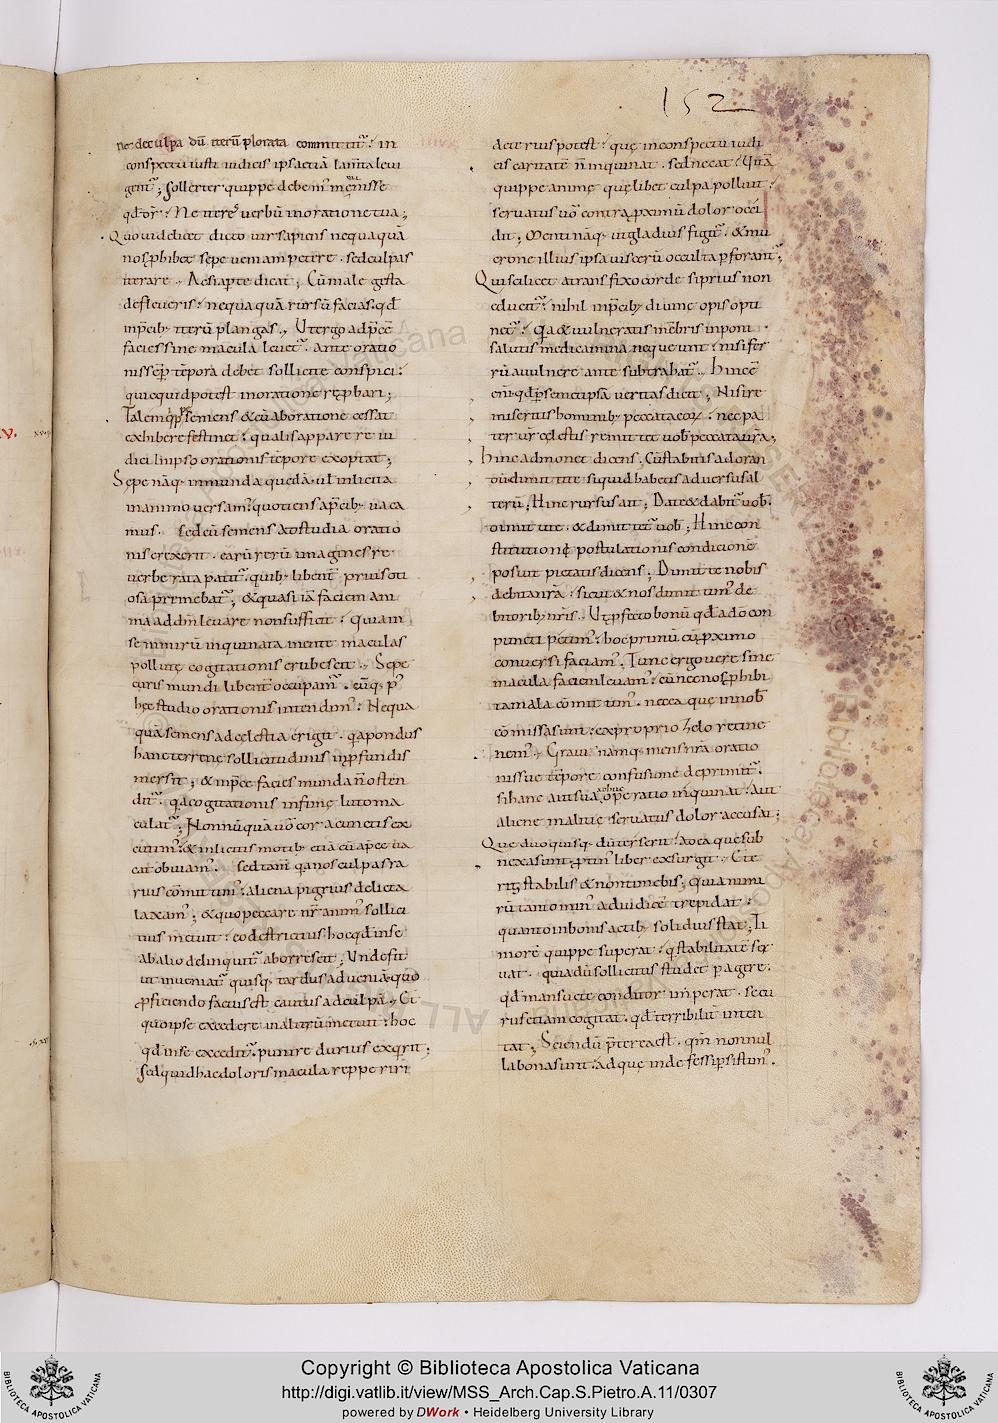 152
ne. de culpa dũ iterũ plorata committit̃. in
conspectu iusti iudicis ipsa etiã lamta leui
gent̃; Sollerter quippe debem̃ meminisse
qđ dr̃. Ne iteres uerbũ in oratione tua;
Quo uidelicet dicto uir sapiens nequaquã
nos ꝓhibet sepe ueniam petere. sed culpas
iterare. Ac si aperte dicat; Cũ male gesta
defleueris. nequaquã rursũ facias. qđ
in p̃cib; iterũ plangas. Ut ergo ad p̃cẽ
facies sine macula leuet̃. ante oratio
nis sẽp tẽpora debet sollicite conspici.
quicquid potest in oratione reꝓbari;
Talemq; p̱ se mens & cũ ab oratione cessat
exhibere festinet. qualis apparere iu
dici in ipso orationis tẽpore exoptat;
Sepe nãq; inmunda quedã. ul inlicita
in animo uersam̃. quotiens a p̃cib; uaca
mus. Sed cũ se mens ad studia oratio
nis erexerit. earũ rerũ imagines re
uerberata patit̃. quib; libent̃ prius oti
osa premebat̃; & quasi iã faciem ani
ma ad dm̃ leuare non sufficit. quia in
se nimirũ inquinata mente maculas
pollutę cogitationis erubescit. Sepe
curis mundi libent̃ occupam̃. cũq; p̃
hęc studio orationis intendim̃. Nequa
quã se mens ad cęlestia erigit. q̃a pondus
hanc terrenę sollicitudinis in ꝓfundis
mersit; & in p̃ce facies munda ñ osten
dit̃. q̃a cogitationis infimę luto ma
culat̃; Nonnũquã uõ cor a cunctis ex
cutim̃. & inlicitis motib; etiã cũ a p̃ce ua
cat obuiam̃. Sed tam̃ q̃a nos culpas ra
rius cõmittim̃. aliena pigrius delicta
laxam̃; & quo peccare nr̃ anim̃ sollici
tius metuit. eo districtius hoc qđ in se
ab alio delinquit̃ aborrescit; Unde fit
ut inueniat̃ quisq; tardus ad ueniã. quo
ꝓficiendo factus est cautus ad culpã. Et
quo ipse excedere in alterũ metuit. hoc
qđ in se excedit̃. punire durius exq̃rit;
Sed quid hac doloris macula repperiri
deterius potest. quę in conspectu iudi
cis caritatẽ ñ inquinat. sed necat. Uitã
quippe animę quęlibet culpa polluit.
seruatus uõ contra ꝓximũ dolor occi
dit; Menti nãq; ut gladius figit̃. & mu
crone illius ipsa uiscerũ occulta ꝑforant̃;
Qui scilicet a transfixo corde si prius non
educit̃. nihil in p̃cib; diuinę opis opti
net̃. Q̃a & uulneratis mẽbris inponi
salutis medicamina nequeunt. nisi fer
rũ a uulnere ante subtrahat̃. Hinc ẽ
eni qđ ꝑ semetipsã ueritas dicit; Nisi re
miseritis hominib; peccata eoꝝ. nec pa
ter ur̃ cęlestis remittet uob peccata ur̃a;
Hinc admonet dicens. Cũ stabitis ad oran
dũ. dimittite si quid habetis aduersus al
terũ; Hinc rursus ait; Date & dabit̃ uob.
dimittite. & dimittet̃ uob; Hinc con
stitutionẽ postulationis condicionẽ
posuit pietatis dicens; Dimitte nobis
debita nr̃a. sicut & nos dimittim̃ de
bitorib; nr̃is. Ut ꝓfecto bonũ qđ a dõ con
puncti petim̃. hoc primũ cũ ꝓximo
conuersi faciam̃. Tunc ergo uere sine
macula faciem leuam̃. cũ nec nos ꝓhibi
ta mala cõmittim̃. nec ea quę in nob
cõmissa sunt. ex proprio zelo retine
nem̃. Graui namq; mens nr̃a oratio
nis suę tẽpore confusione deprimit̃.
si hanc aut sua adhuc operatio inquinat. aut
alienę malitię seruatus dolor accusat;
Que duo quisq; dũ terserit. ad ea que sub
nexa sunt ꝓtiñ liber exsurgit. Et e
ris stabilis & non timebis; quia nimi
rũ tanto miñ ad iudicẽ trepidat.
quanto in bonis actib; solidius stat; Ti
morẽ quippe superat. q̃ stabilitatẽ ser
uat. quia dũ sollicitus studet ꝑagere.
qđ mansuete conditor imperat. secu
rus etiam cogitat. qđ terribilit̃ inten
tat; Sciendũ p̃terea est. qm̃ nonnul
la bona sunt. ad quę indefessi ꝑsistim̃.
Copyright © Biblioteca Apostolica Vaticana
http://digi.vatlib.it/view/MSS_Arch.Cap.S.Pietro.A.11/0307
powered by DWork • Heidelberg University Library